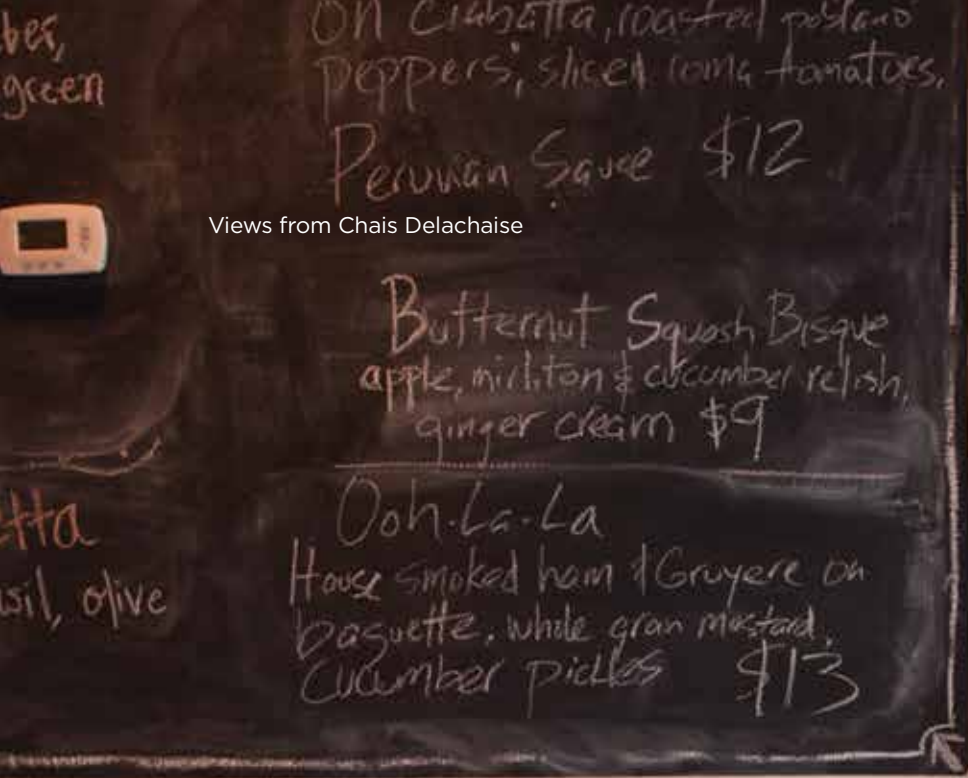 ber,
green
On Ciabatta, roasted poblano
peppers, sliced roma tomatoes,
Peruvian Sauce $12
Views from Chais Delachaise
Butternut Squash Bisque
apple, mirliton & cucumber relish,
ginger cream $9
etta
asil, olive
Ooh-La-La
House smoked ham & Gruyere on
baguette, whole gran mustard,
cucumber pickles $13